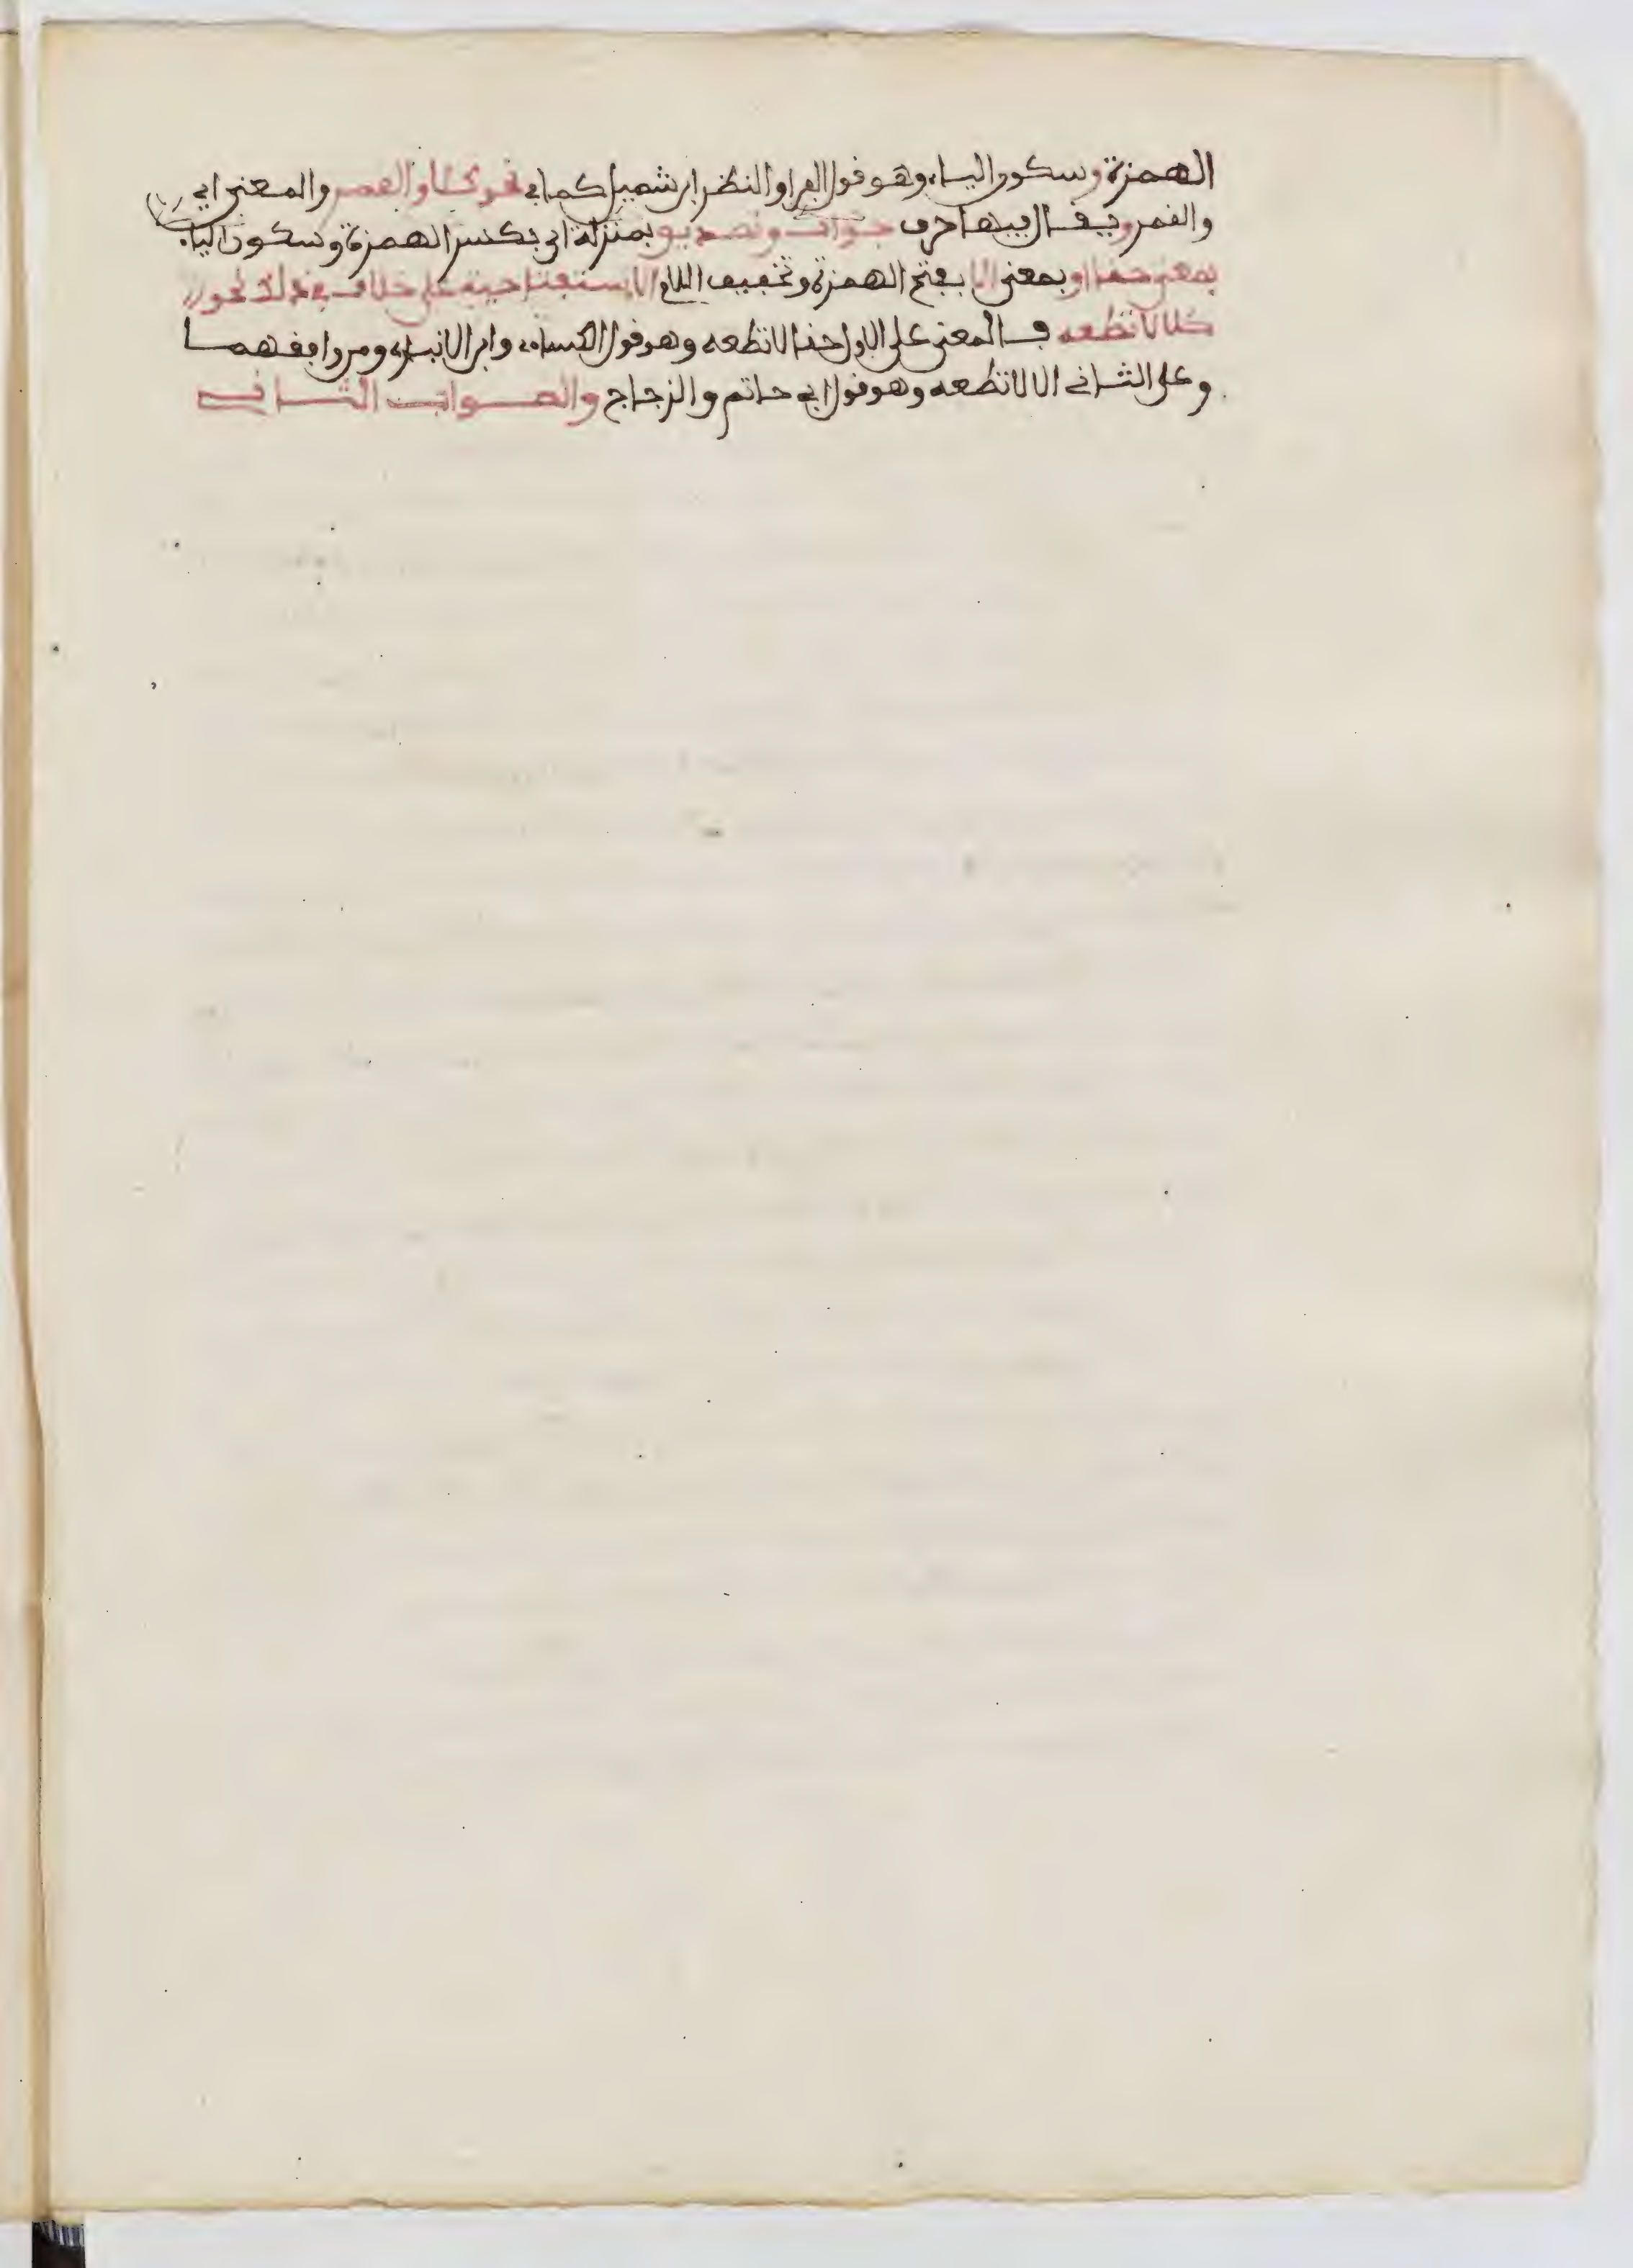 الهمزة وسكون الياء وهو قول الفرا والنظر ابن شميل كما في نحو كلا والقمر والمعنى اي
والقمر ويقال فيها حرف جواب وتصديق بمنزلة اي بكسر الهمزة وسكون الياء
بمعنى حقا او بمعنى الا بفتح الهمزة وتخفيف اللام الاستفتاحية على خلاف في ذلك نحو
كلا لا تطعه فالمعنى على الاول حقا لا تطعه وهو قول الكساءي وابن الانباري ومن وافقهما
وعلى الثاني الا لا تطعه وهو قول ابي حاتم والزجاج والصواب الثاني